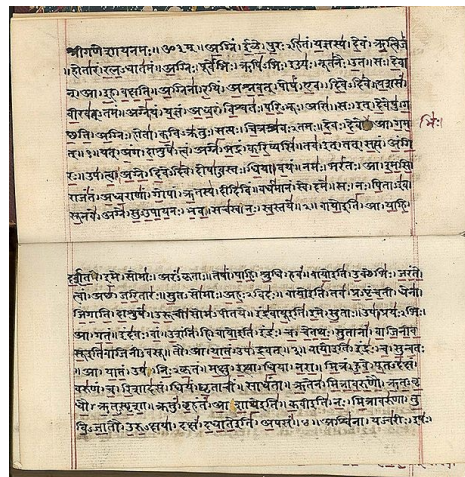 श्रीगणेशायनमः॥ॐ३म्॥अग्निं।ईळे।पुरःऽहितं।यज्ञस्य।देवं।ऋत्विजं
।होतारं।रत्नऽधातमं।अग्निः।पूर्वेभिः।ऋषिऽभिः।ईड्यः।नूतनैः।उत।सः।देवा
न्।आ।इह।वक्षति।अग्निना।रयिं।अश्नवत्।पोषं।एव।दिवेऽदिवे।यशसं
वीरवत्ऽतमं।अग्ने।यं।यज्ञं।अध्वरं।विश्वतः।परिऽभूः।असि।सः।इत्।देवेषु।ग
च्छति।अग्निः।होता।कविऽक्रतुः।सत्यः।चित्रश्रवःऽतमः।देवः।देवे।आ।गम भिः
त्॥१॥यत्।अंग।दाशुषे।त्वं।अग्ने।भद्रं।करिष्यसि।तव।इत्।तत्।सत्यं।अंगि
रः।उप।त्वा।अग्ने।दिवेऽदिवे।दोषाऽवस्तः।धिया।वयं।नमः।भरंतः।आ।इमसि।
राजंतं।अध्वराणां।गोपां।ऋतस्य।दीदिविं।वर्धमानं।स्वे।दमे।सः।नः।पिताऽइव।
सूनवे।अग्ने।सुऽउपायनः।भव।सचस्व।नः।स्वस्तये॥२॥वायोइति।आ।याहि।
दर्शत।इमे।सोमाः।अरंऽकृताः।तेषां।पाहि।श्रुधि।हवं।वायोइति।उक्थेभिः।जरंते।
त्वां।अच्छ।जरितारः।सुतऽसोमाः।अहःऽविदः।वायोइति।तव।प्रऽपृंचती।धेना।
जिगाति।दाशुषे।उरूची।सोमऽपीतये।इंद्रवायूइति।इमे।सुताः।उप।प्रयःऽभिः।
आ।गतं।इंदवः।वां।उशंति।हि।वायोइति।इंद्रः।च।चेतथः।सुतानां।वाजिनीव
सूइतिवाजिनीऽवसू।तौ।आ।यातं।उप।द्रवत्॥३॥वायोइति।इंद्रः।च।सुन्वतः
।आ।यातं।उप।निःऽकृतं।मक्षु।इत्था।धिया।नरा।मित्रं।हुवे।पूतऽदक्षं।
वरुणं।च।रिशादसं।धियं।घृताचीं।साधंता।ऋतेन।मित्रावरुणौ।ऋतऽवृ
धौ।ऋतऽस्पृशा।क्रतुं।बृहंतं।आशाथेइति।कवीइति।नः।मित्रावरुणा।तु
विऽजातौ।उरुऽक्षया।दक्षं।दधातेइति।अपसं॥४॥अश्विना।यज्वरीः।इषः।